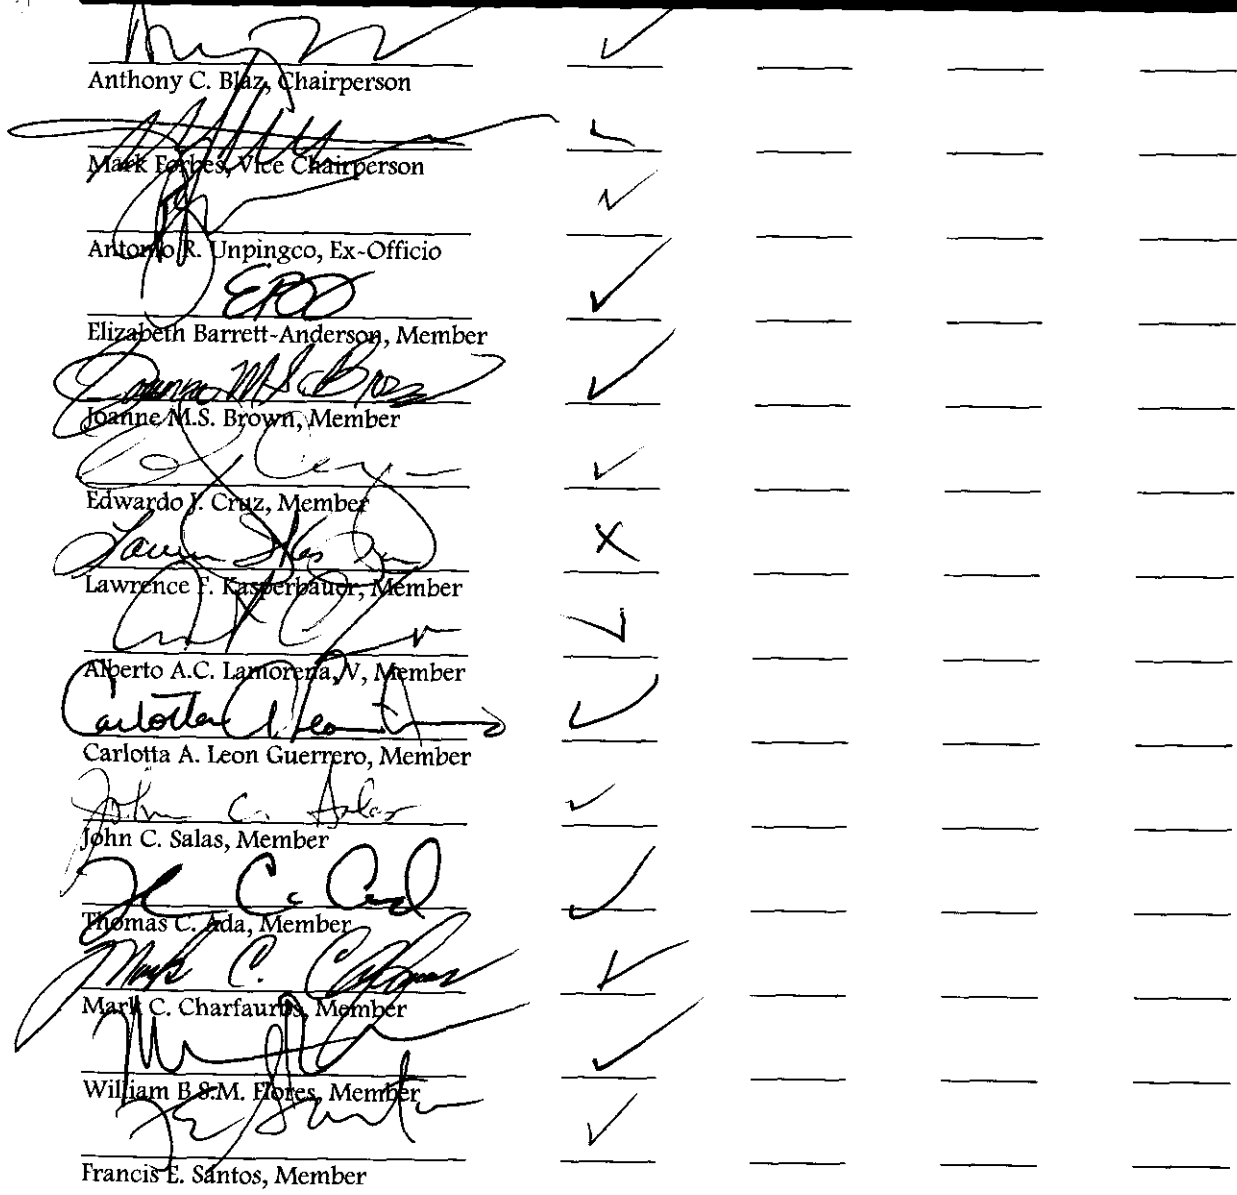 Anthony C. Blaz, Chairperson
Mark Forbes, Vice Chairperson
Antonio R. Unpingco, Ex-Officio
Elizabeth Barrett-Anderson, Member
Joanne M.S. Brown
Joanne M.S. Brown, Member
Edwardo J. Cruz, Member
Lawrence F. Kasperbauer, Member
Alberto A.C. Lamorena, V, Member
Carlotta A. Leon Guerrero, Member
John C. Salas
John C. Salas, Member
Thomas C. Ada, Member
Mark C. Charfauros
Mark C. Charfauros, Member
William B.S.M. Flores, Member
F E Santos
Francis E. Santos, Member